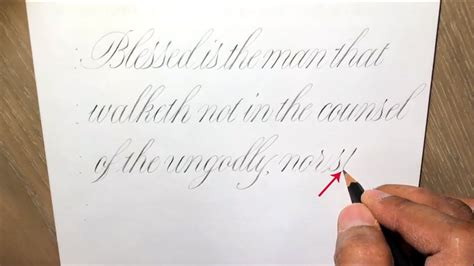 Blessed is the man that
walketh not in the counsel
of the ungodly, nor s